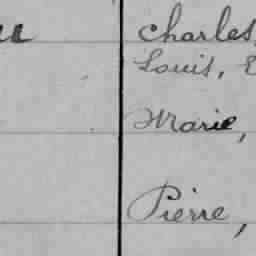 Charles,
Louis, E
Marie,
Pierre,